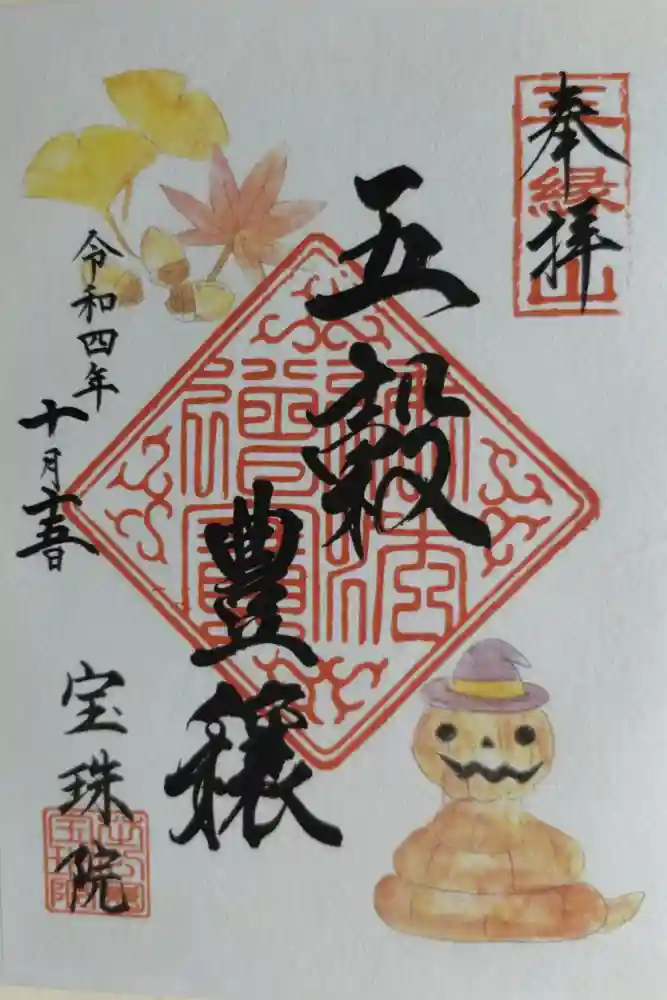 奉拝
五穀
豊穣
令和四年
十月十五日
宝珠院